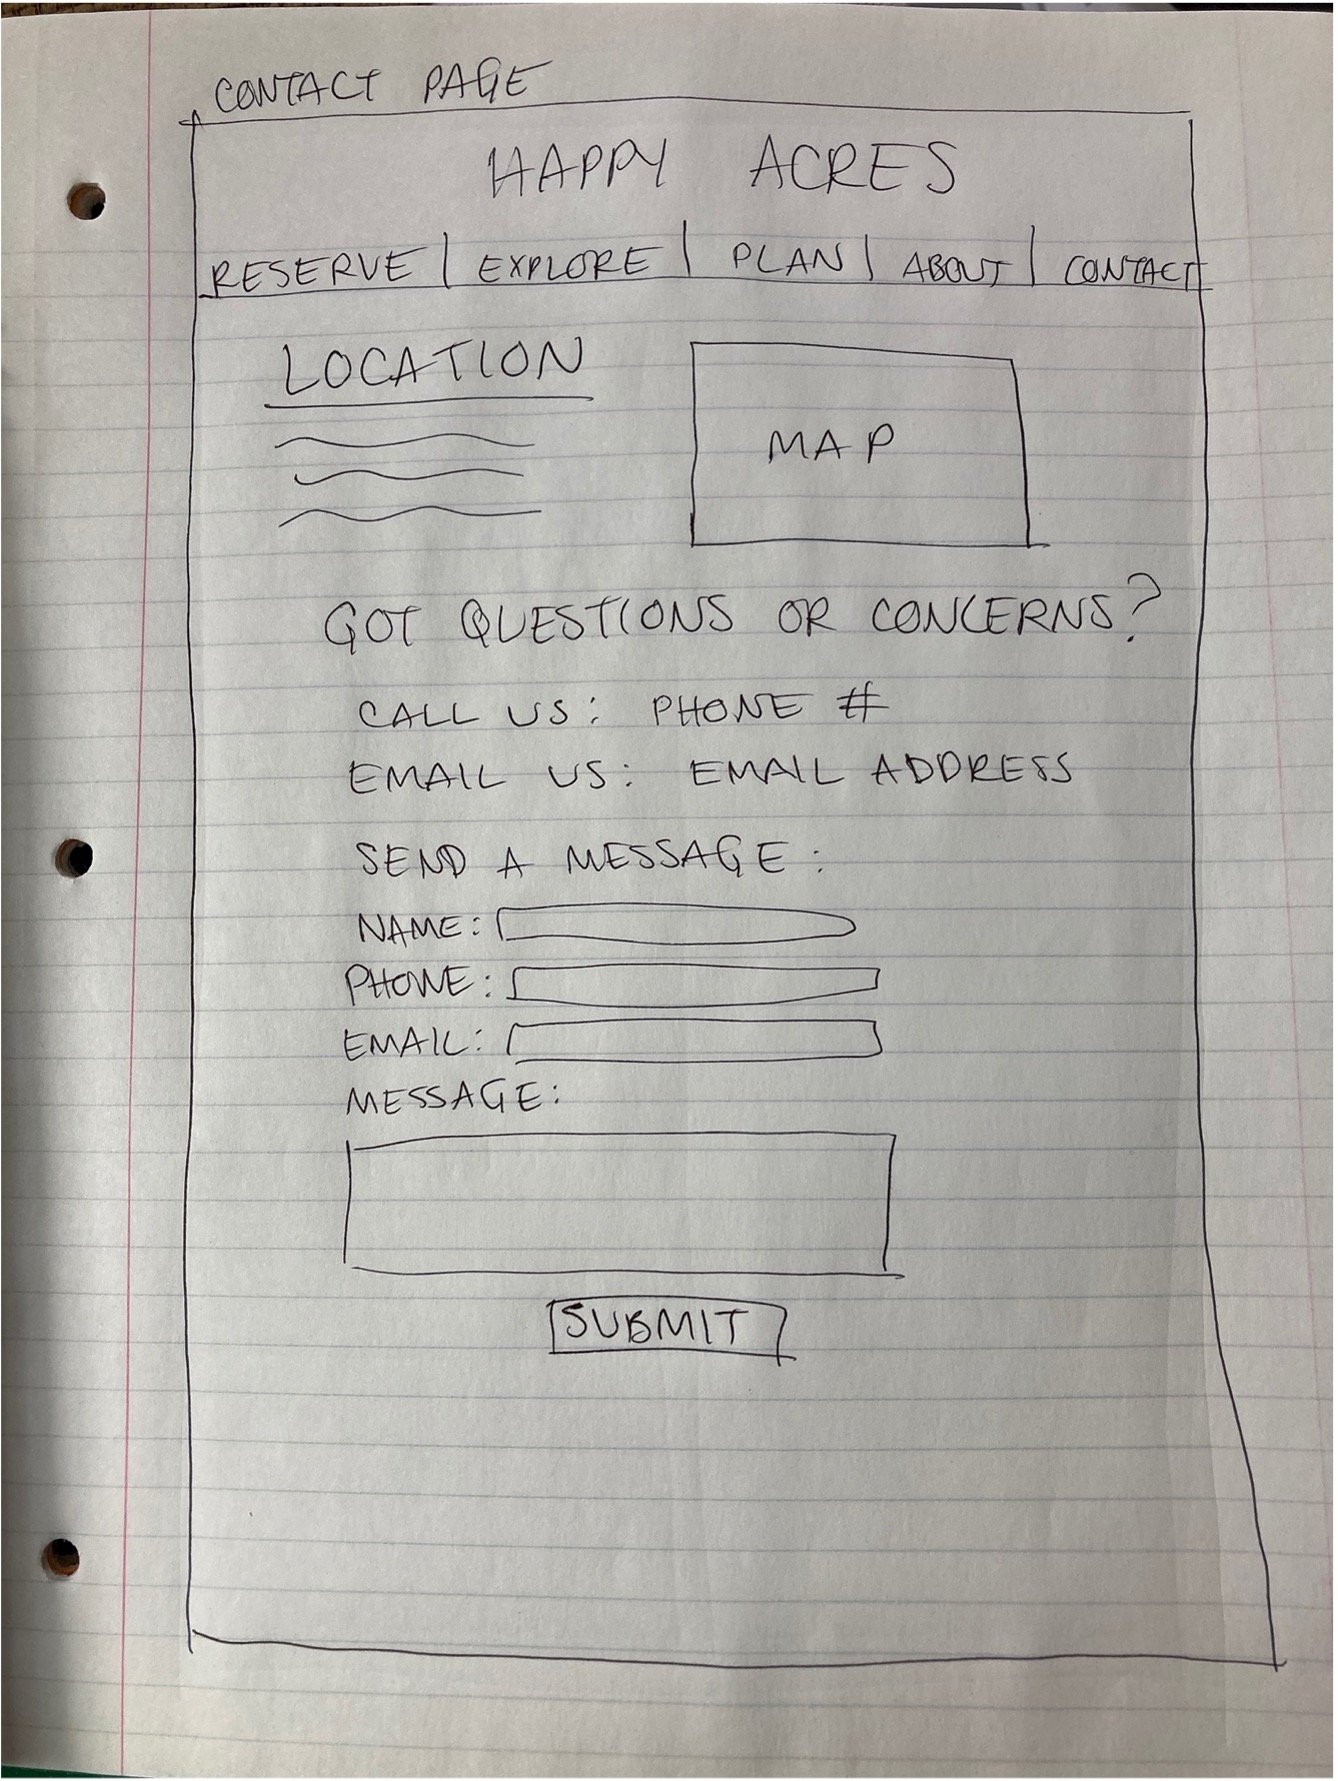 CONTACT PAGE
HAPPY ACRES
RESERVE | EXPLORE | PLAN | ABOUT | CONTACT
LOCATION
MAP
GOT QUESTIONS OR CONCERNS?
CALL US: PHONE #
EMAIL US: EMAIL ADDRESS
SEND A MESSAGE:
NAME:
PHONE:
EMAIL:
MESSAGE:
SUBMIT